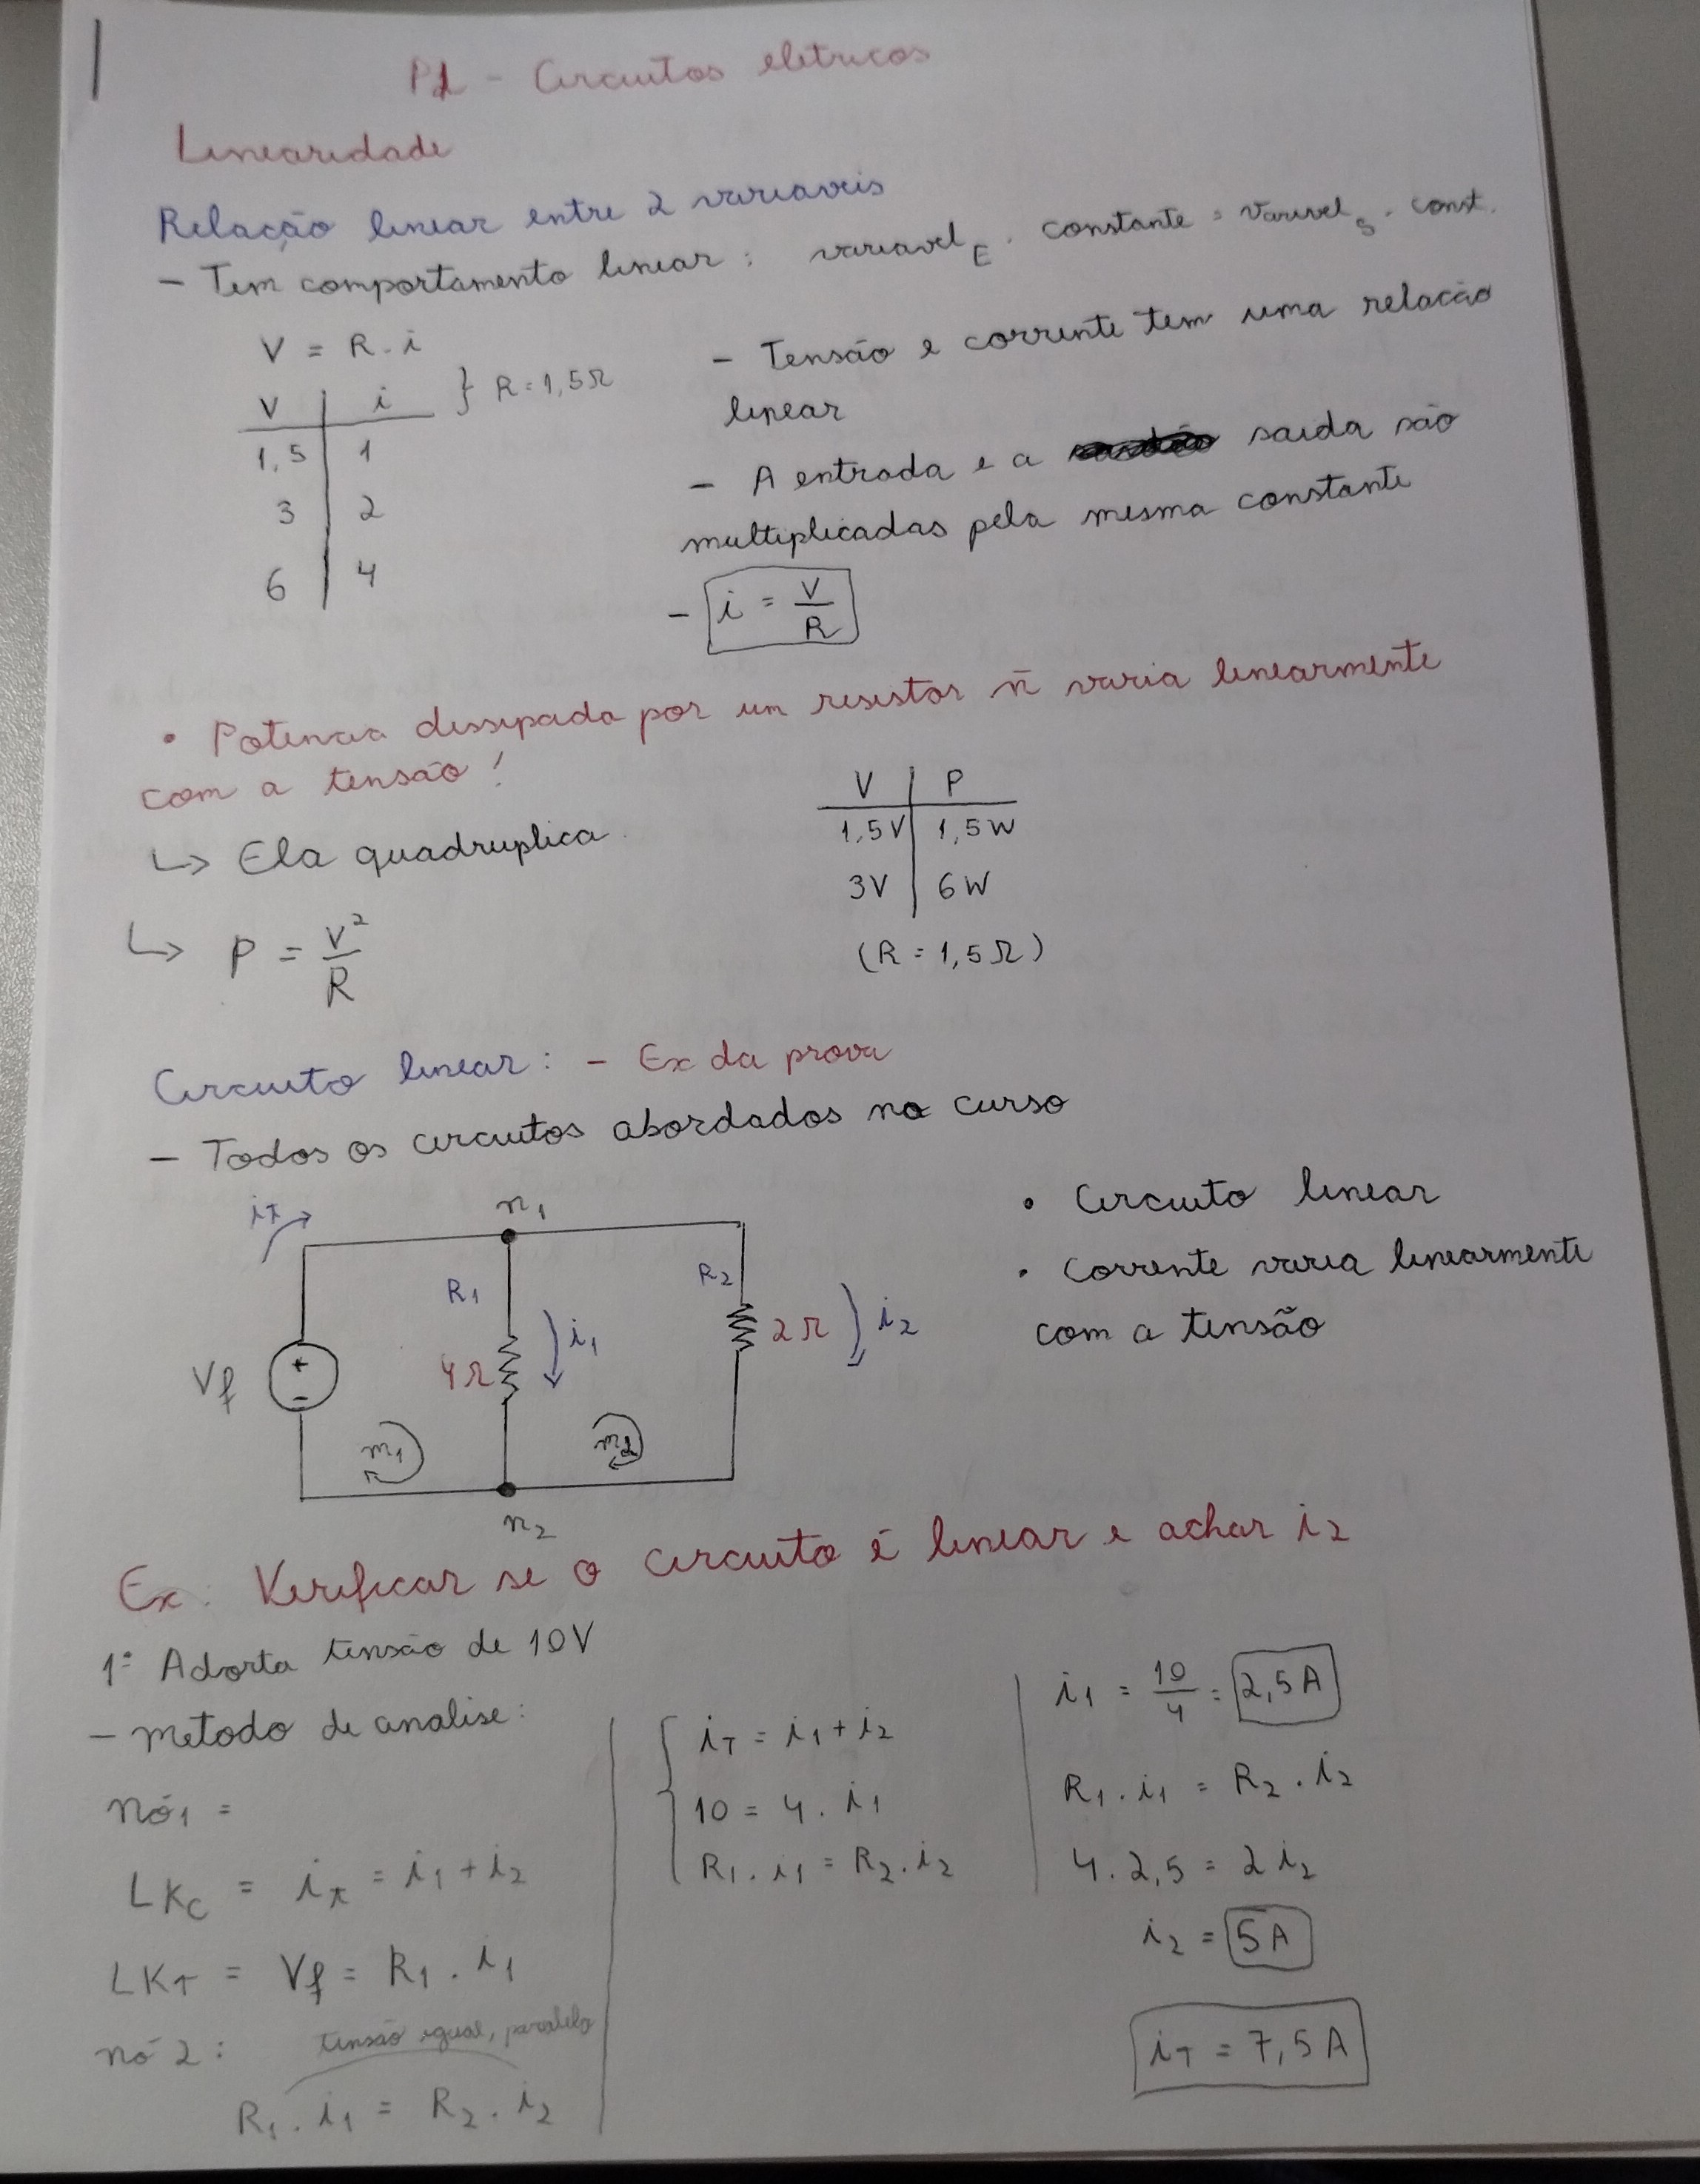 P1 - Circuitos eletricos
Linearidade
Relação linear entre 2 variaveis
- Tem comportamento linear: variavel_E . constante = varivel_S . const.
V = R . i
V | i } R = 1,5Ω
1,5 | 1
3 | 2
6 | 4
- Tensão e corrente tem uma relacão
linear
- A entrada e a saida são
multiplicadas pela mesma constante
- i = V/R
• Potencia dissipada por um resistor ñ varia linearmente
com a tensão!
↳ Ela quadruplica
↳ P = V²/R
V | P
1,5V | 1,5W
3V | 6W
(R = 1,5Ω)
Circuito linear: - Ex da prova
- Todos os circuitos abordados no curso
iT
n1
R1
R2
4Ω
i1
2Ω
i2
Vf
+
-
m1
m2
n2
• Circuito linear
• Corrente varia linearmente
com a tensão
Ex: Verificar se o circuito é linear e achar i2
1º Adorta tensão de 10V
- metodo de analise:
nó1 =
LKC = iT = i1 + i2
LKT = Vf = R1 . i1
nó 2: tensão igual, paralelo
R1 . i1 = R2 . i2
iT = i1 + i2
10 = 4 . i1
R1 . i1 = R2 . i2
i1 = 10/4 = 2,5A
R1 . i1 = R2 . i2
4 . 2,5 = 2 i2
i2 = 5A
iT = 7,5A